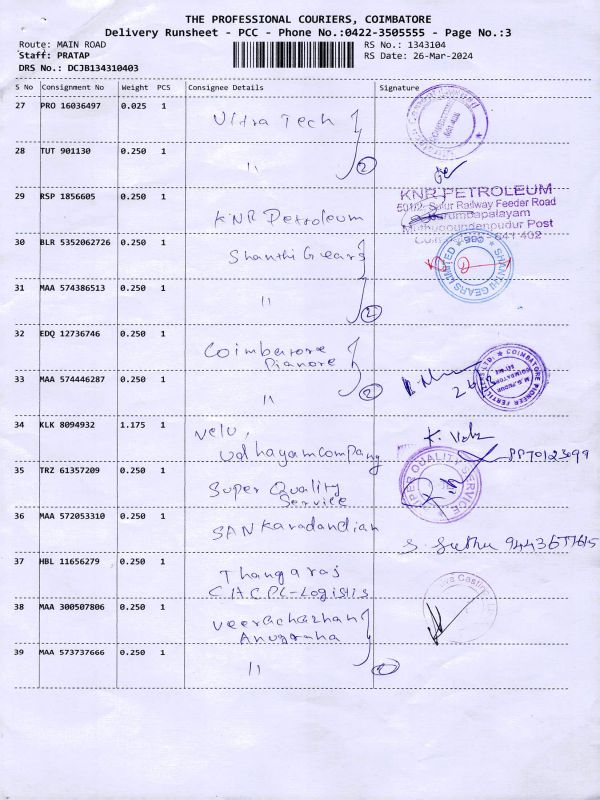 THE PROFESSIONAL COURIERS, COIMBATORE
Delivery Runsheet - PCC - Phone No.:0422-3505555 - Page No.:3
Route: MAIN ROAD RS No.: 1343104
Staff: PRATAP RS Date: 26-Mar-2024
DRS No.: DCJB134310403
S No Consignment No Weight PCS Consignee Details Signature
27 PRO 16036497 0.025 1
Ultra Tech
28 TUT 901130 0.250 1
11 2
29 RSP 1856605 0.250 1
KNR Petroleum
KNR PETROLEUM
Railway Feeder Road
Kurumbapalayam
Muthugoundanpudur Post
641 402
30 BLR 5352062726 0.250 1
Shanthi Gears
SHANTHI GEARS LIMITED
31 MAA 574386513 0.250 1
11 2
32 EDQ 12736746 0.250 1
Coimbarore
Pianore
33 MAA 574446287 0.250 1
11 2
COIMBATORE PIONEER FERTILIZERS LTD.
34 KLK 8094932 1.175 1
Velu,
Udhayamcompany
35 TRZ 61357209 0.250 1
Super Quality
Service
SUPER QUALITY SERVICE
36 MAA 572053310 0.250 1
SANKaradandian
37 HBL 11656279 0.250 1
Thangaraj
C.H.C.P.L-Logistis
38 MAA 300507806 0.250 1
Anugraha
39 MAA 573737666 0.250 1
11